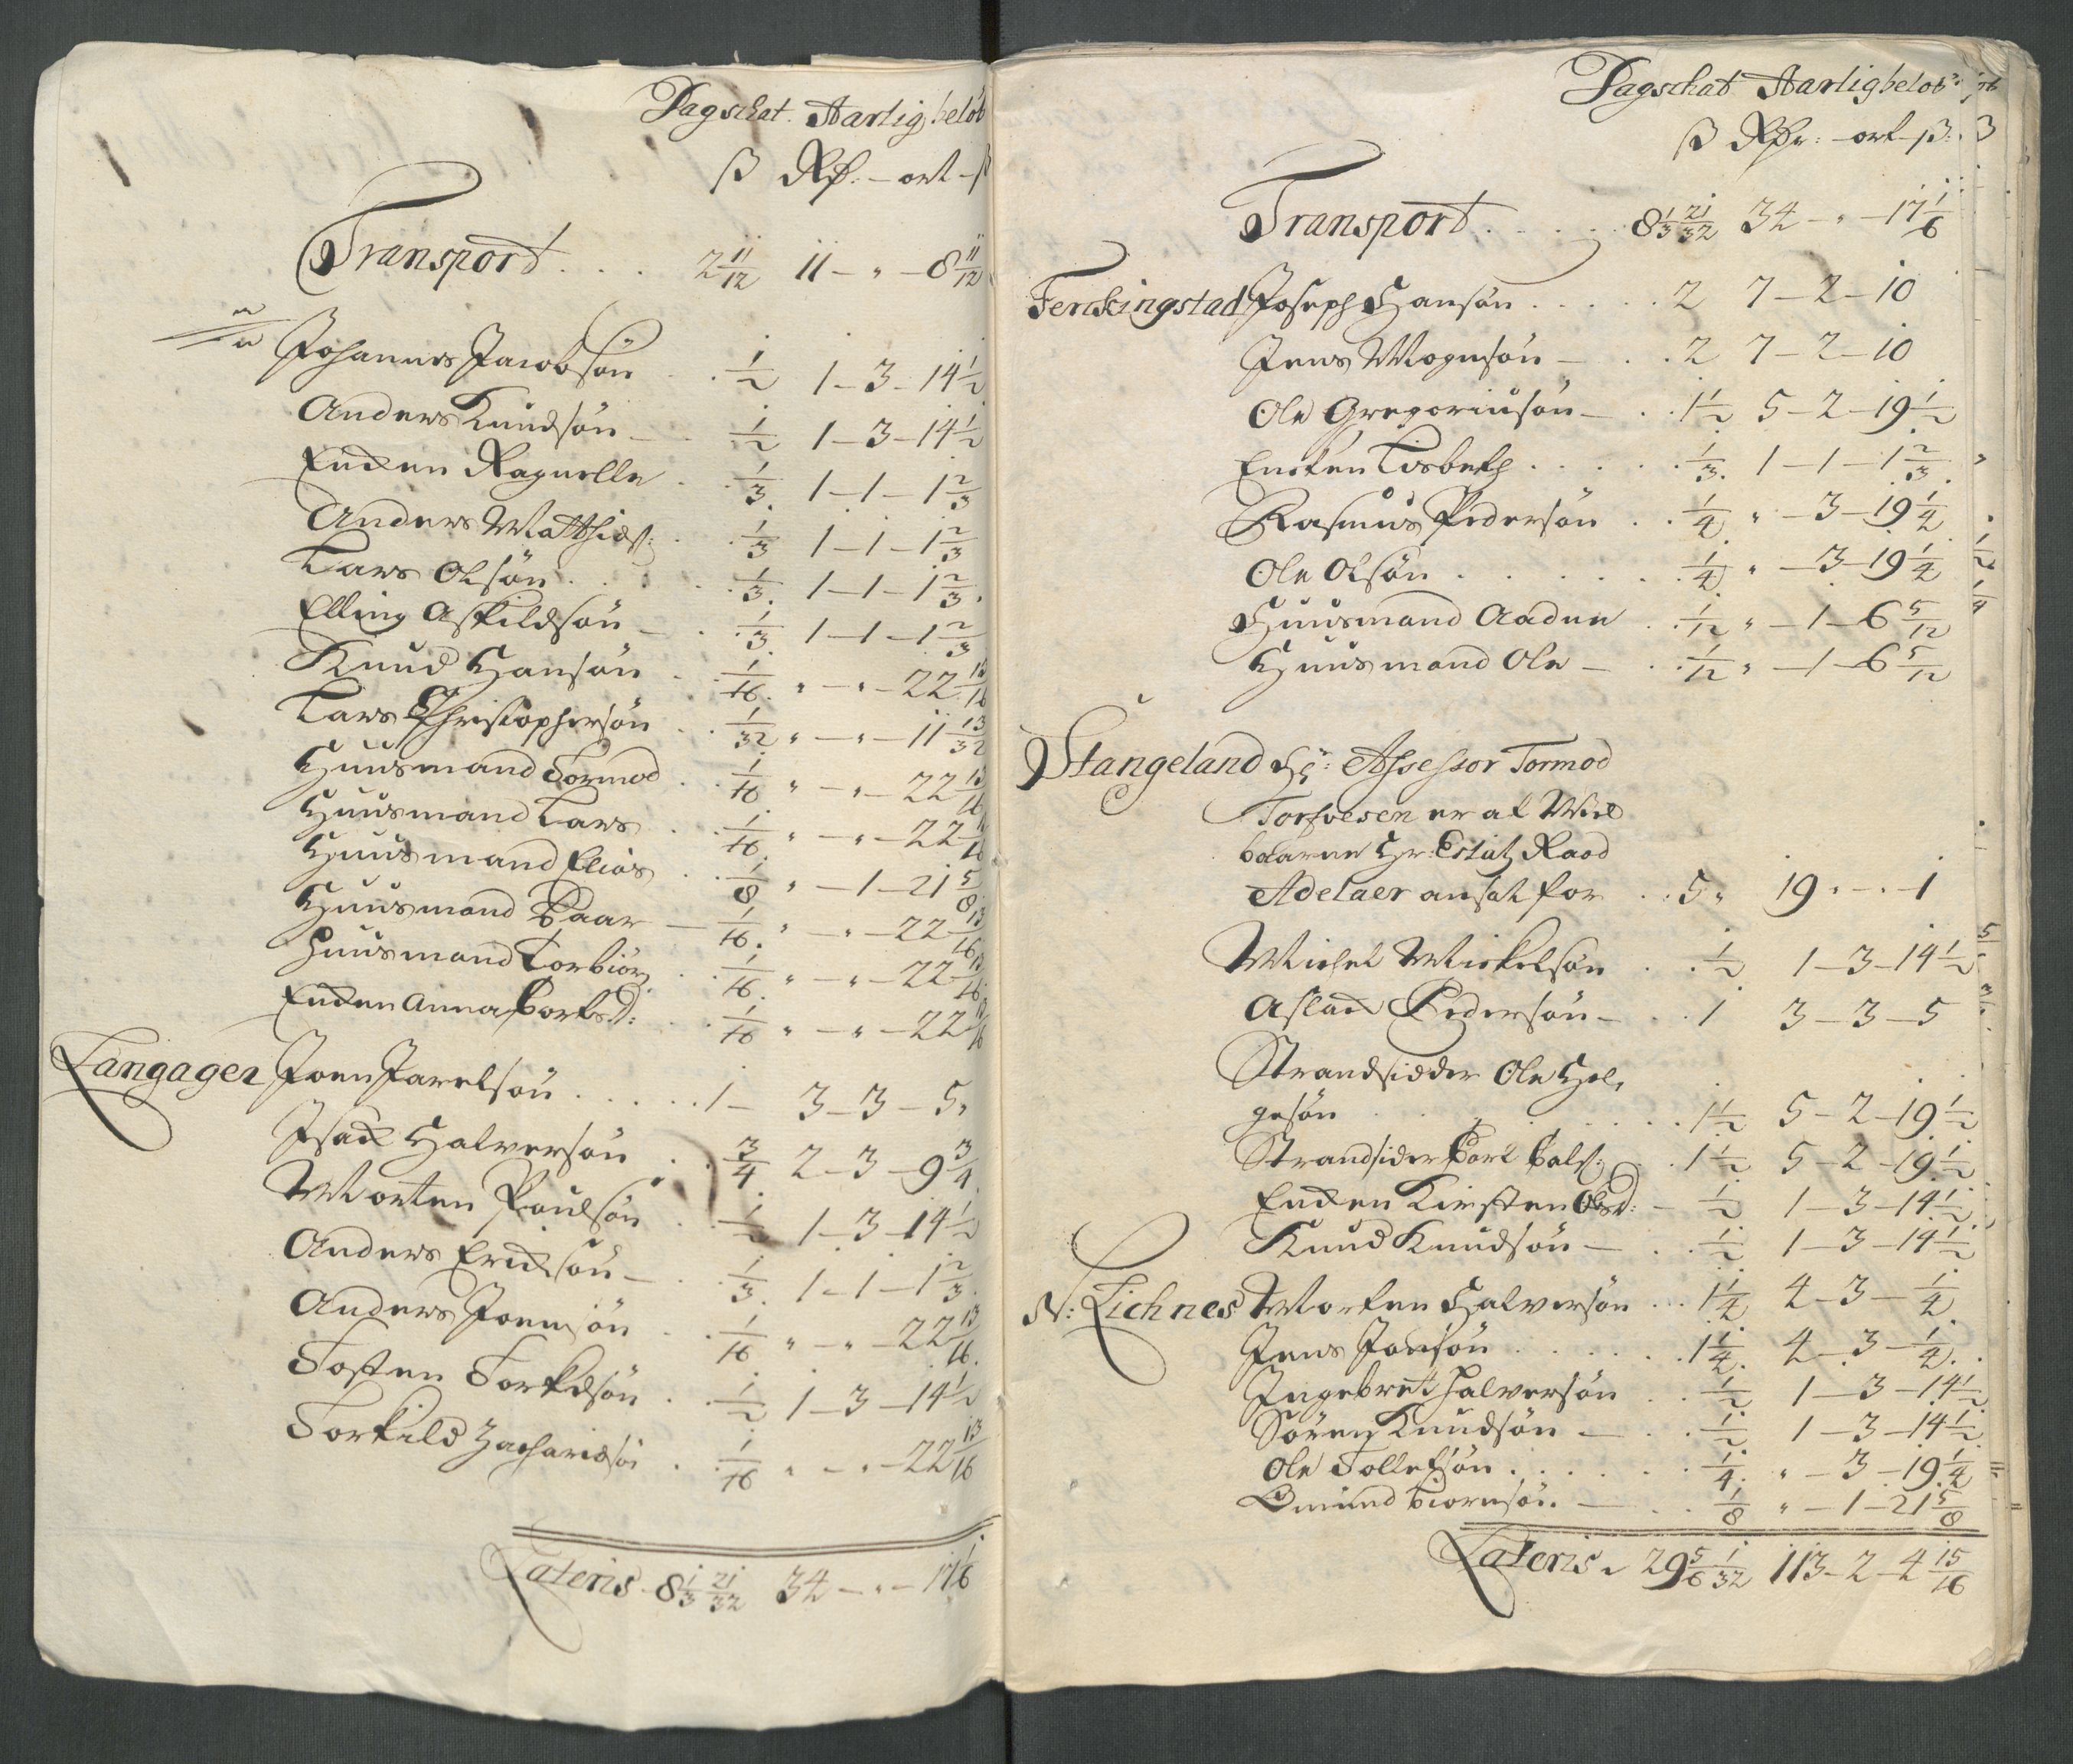 Dagschat. Aarlig beløb
ß Rdr: – ort – ß
Transport . . . . 2 11/12 11 – " – 8 11/12
Johannes Jacobsön . . 1/2 1 – 3 – 14 1/2
Anders Knudsön – . 1/2 1 – 3 – 14 1/2
Encken Ragnelle . 1/3 1 – 1 – 1 2/3
Anders Matthiæs: . . 1/3 1 – 1 – 1 2/3
Lars Olsön . . . . 1/3 1 – 1 – 1 2/3
Elling Askildsön – . 1/3 1 – 1 – 1 2/3
Knud Hansön . . 1/16 " – " – 22 13/16
Lars Christophersön . . 1/32 " – " – 11 13/32
Huusmand Tormod . . 1/16 " – " – 22 13/16
Huusmand Lars . . 1/16 " – " – 22 13/16
Huusmand Elias . . 1/8 " – 1 – 21 5/8
Huusmand Paar – 1/16 " – " – 22 13/16
Huusmand Torbiörn . . 1/16 " – " – 22 13/16
Encken Anna Bordsd: . . 1/16 " – " – 22 13/16
Langager Joen Jarelsön . . . . . 1 – 3 – 3 – 5 "
Isack Halversön . . 3/4 2 – 3 – 9 3/4
Morten Poulsön . . 1/2 1 – 3 – 14 1/2
Anders Ericksön – . . 1/3 1 – 1 – 1 2/3
Anders Joensön . . 1/16 " – " – 22 13/16
Tosten Torkildsön . . 1/2 1 – 3 – 14 1/2
Torkild Zachariæsön . . 1/16 " – " – 22 13/16
Lateris . 8 1/3 21/32 34 – " – 17 1/6
Dagschat Aarlig beløb:
ß Rdr: – ort – ß:
Transport . . . . . 8 1/3 21/32 34 – " – 17 1/6
Ferckingstad Joseph Hansön . . . . . 2 7 – 2 – 10
Jens Mognsön – . . 2 7 – 2 – 10
Ole Gregoriusön – . . 1 1/2 5 – 2 – 19 1/2
Encken Lisbeth . . . . . 1/3 1 – 1 – 1 2/3
Rasmus Pedersön . . 1/4 " – 3 – 19 1/4
Ole Olsön . . . . . . 1/4 " – 3 – 19 1/4
Huusmand Aadne . . 1/12 " – 1 – 6 5/12
Huusmand Ole – . . 1/12 " – 1 – 6 5/12
Stangeland Hr: Assessor Tormod
Torfvesen er af Wel
baarne Hr: Estatz Raad
Adelaer ansat for . . 5 " 19 " – . – 1
Michel Mickelsön . . 1/2 1 – 3 – 14 1/2
Aslack Pedersön – . . 1 3 – 3 – 5
Strandsidder Ole Hel,
gesön . . . . . . 1 1/2 5 – 2 – 19 1/2
Strandsider Poel Pals: . . 1 1/2 5 – 2 – 19 1/2
Encken Kirsten Olsd: – 1/2 1 – 3 – 14 1/2
Knud Knudsön – . . 1/2 1 – 3 – 14 1/2
N: Lichnes Morten Halversön . . . 1 1/4 4 – 3 – 1/4
Jens Jonsön . . . . . . 1 1/4 4 – 3 – 1/4
Ingebret Halversön . . 1/2 1 – 3 – 14 1/2
Sören Knudsön – . . 1/2 1 – 3 – 14 1/2
Ole Tollefsön . . . . . 1/4 " – 3 – 19 1/4
Omund Biornsön . – . . 1/8 " – 1 – 21 5/8
Lateris . 29 5/6 1/32 113 – 2 – 4 15/16